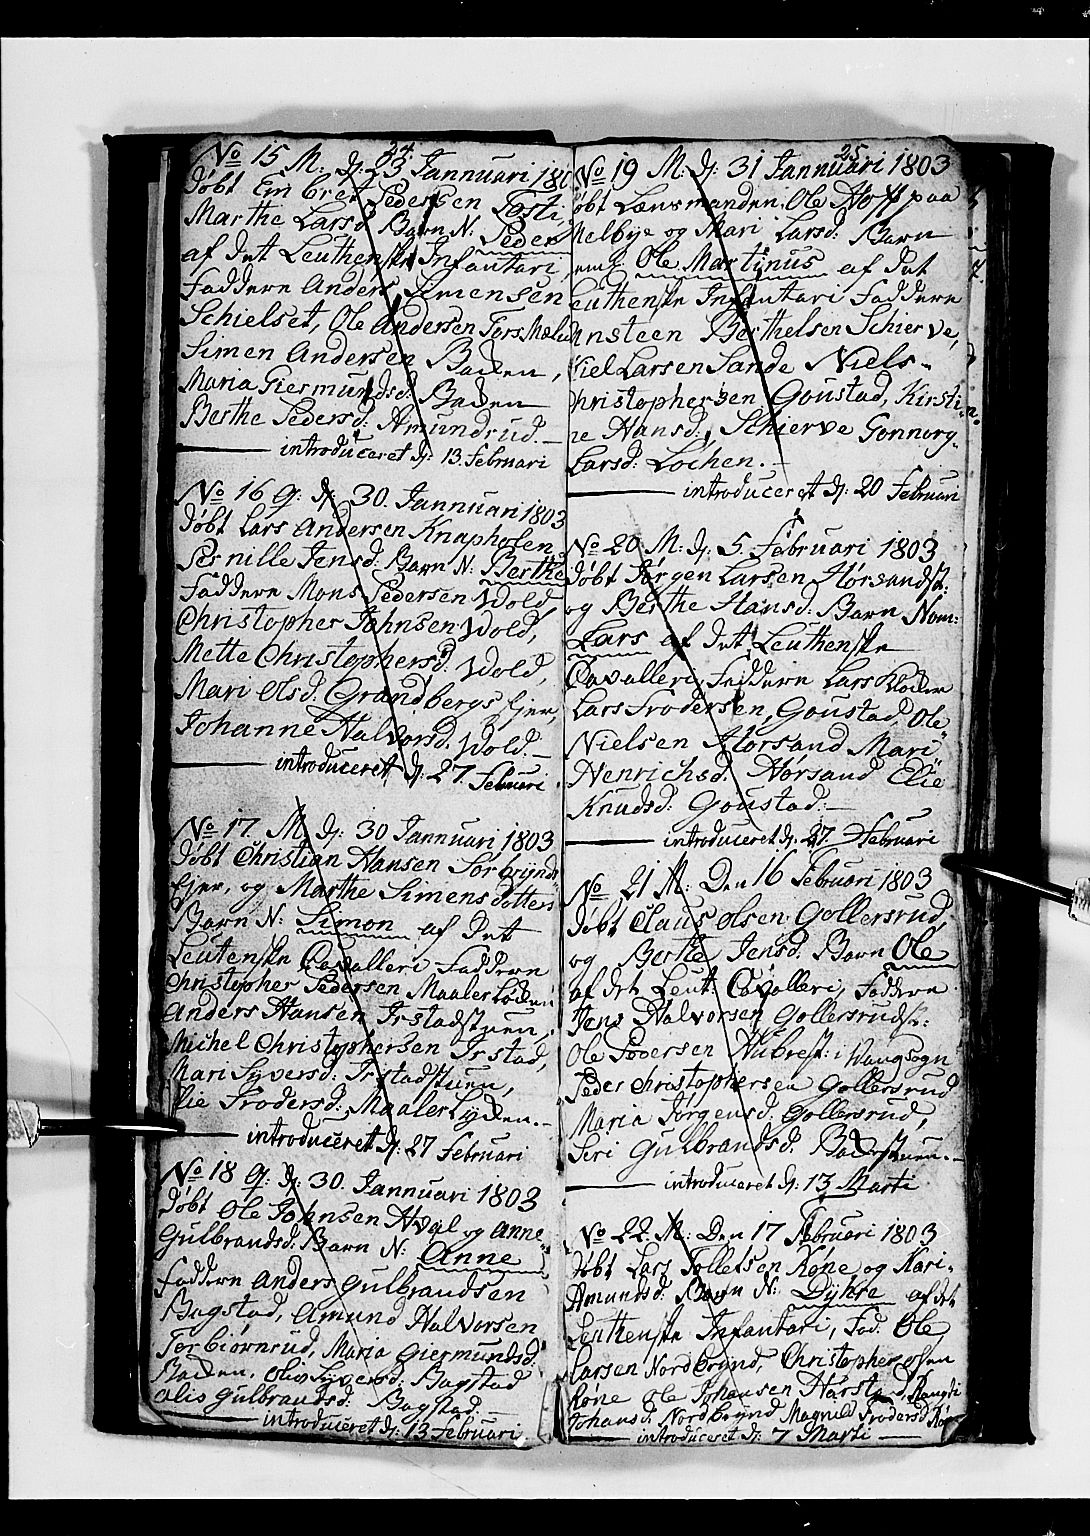 24.
No 15 M: d: 23 Jannuari 180
Døbt Embret Pedersen Tosti
Marthe Larsd Barn N: Peder
af det Leuthenske Infantari
Faddere Anders Simensen
Schielset, Ole Andersen Torsmælun
Simen Andersen Baden,
Maria Giermundsd: Baden
Berthe Pedersd: Amundrud.
introduceret d: 13. Februari
No 16 q: d: 30. Jannuari 1803
Døbt Lars Andersen Knapholen
Pernille Jensd: Barn N: Berthe
Faddere Mons Pedersen Wold
Christopher Johnsen Wold,
Mette Christophersd: Wold,
Mari Olsd: Grandbergs Ejer,
Johanne Halvorsd: Wold.
introduceret d: 27. Februari
No 17. M. d: 30 Jannuari 1803
Døbt Christian Hansen Sørbrynds
Ejer, og Marthe Simensdotters
Barn N: Simon af det
Leutenske Cavalleri Faddere
Christopher Pedersen Maaler Løden
Anders Hansen Irstadstuen,
Michel Christophersen Irstad,
Mari Syversd: Irstadstuen,
Elie Frodersd: Maaler Lyden.
introduceret d: 27 Februari
No 18 q: d: 30. Jannuari 1803
Døbt Ole Johnsen Hval og Anne
Gulbrandsd: Barn N: Anne
Faddere Anders Gulbrandsen
Bagstad, Amund Halvorsen
Torbiørnrud, Maria Giermundsd:
Baden, Oliv Syversd: Bagstad
Olis Gulbrandsd: Bagstad.
introduceret d: 13 Februari
25.
No 19 M: d: 31 Jannuari 1803
øbt Lænsmanden Ole Hoff paa
Melbye og Mari Larsd: Barn
Ole Martinus af det
euthenske Infantari Faddere
nsteen Berthelsen Schierve,
Niel Larsen Sande Niels
Christophersen Goustad, Kirsti
ne Hansd:, Schierve Gonnorg
Larsd: Løchen.
introduceret d: 20 Februari
No 20 M: d: 5. Februari 1803
Døbt Jørgen Larsen Horsandst:
og Berthe Hansd: Barn Nom:
Lars af det Leuthenske
Cavalleri, Faddere Lars Klocker
Lars Frodersen, Goustad, Ole
Nielsen Horsand Mari
Henrichsd: Horsand Elie
Knudsd: Goustad:
introduceret d: 27 Februari
No 21 M: Den 16 Februari 1803
Døbt Claus Olsen Gollersrud,
og Berthe Jensd: Barn Ole
af det Leut: Cavalleri, Faddere
Jens Halvorsen Gollersrudst:
Ole Pedersen Hubrest: i Wangsogn
Peder Christophersen Gollersrud
Maria Jørgensd: Gollersrud,
Siri Gulbrandsd: Badenstuen.
introduceret d: 13 Marti
No 22. M: Den 17 Februari 1803
Døbt Lars Tollefsen Røne og Kari
Amundsd: Barn N: Dyhre af det
Leuthenske Infantari, Fad: Ole
Larsen Nordbrynd, Christopher Olsen
Røne Ole Johansen Harstad
Johansd: Nordbrynd Magnild Frodersd:
introduceret d: 7 Marti